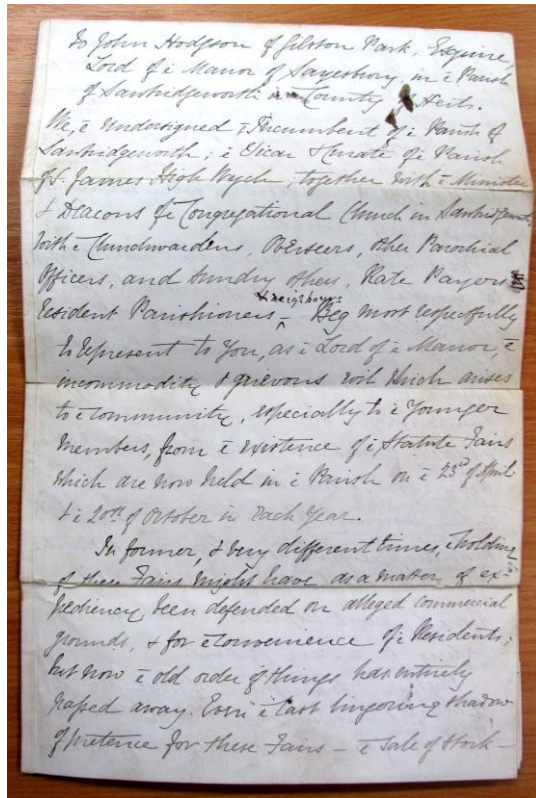 To John Hodgson of Gilston Park, Esquire,
Lord of ē Manor of Sayesbury, in ē Parish
of Sawbridgeworth in ē County of Herts.
We, ē Undersigned ē Incumbent of ē Parish of
Sawbridgeworth; ē Vicar & Curate of ē Parish
of S. James High Wych, together with ē Minister
& Deacons of ē Congregational Church in Sawbridgeworth,
with ē Churchwardens, Overseers, other Parochial
Officers, and sundry others, Rate Payers
& neighbours
Resident Parishioners – Beg most respectfully
to represent to You, as ē Lord of ē Manor, ē
incommodity & grievous evil which arises
to ē community, especially to ē Younger
Members, from ē existence of ē Statute Fairs
which are now held in ē Parish on ē 23rd of April
& ē 20th of October in each Year.
In former, & very different times, ē holding
of these Fairs might have, as a matter of ex-
pediency been defended on alleged commercial
grounds, & for ē convenience of ē Residents;
but now ē old order of things has entirely
passed away. Even ē last lingering shadow
of pretence for these Fairs – ē Sale of Stock –